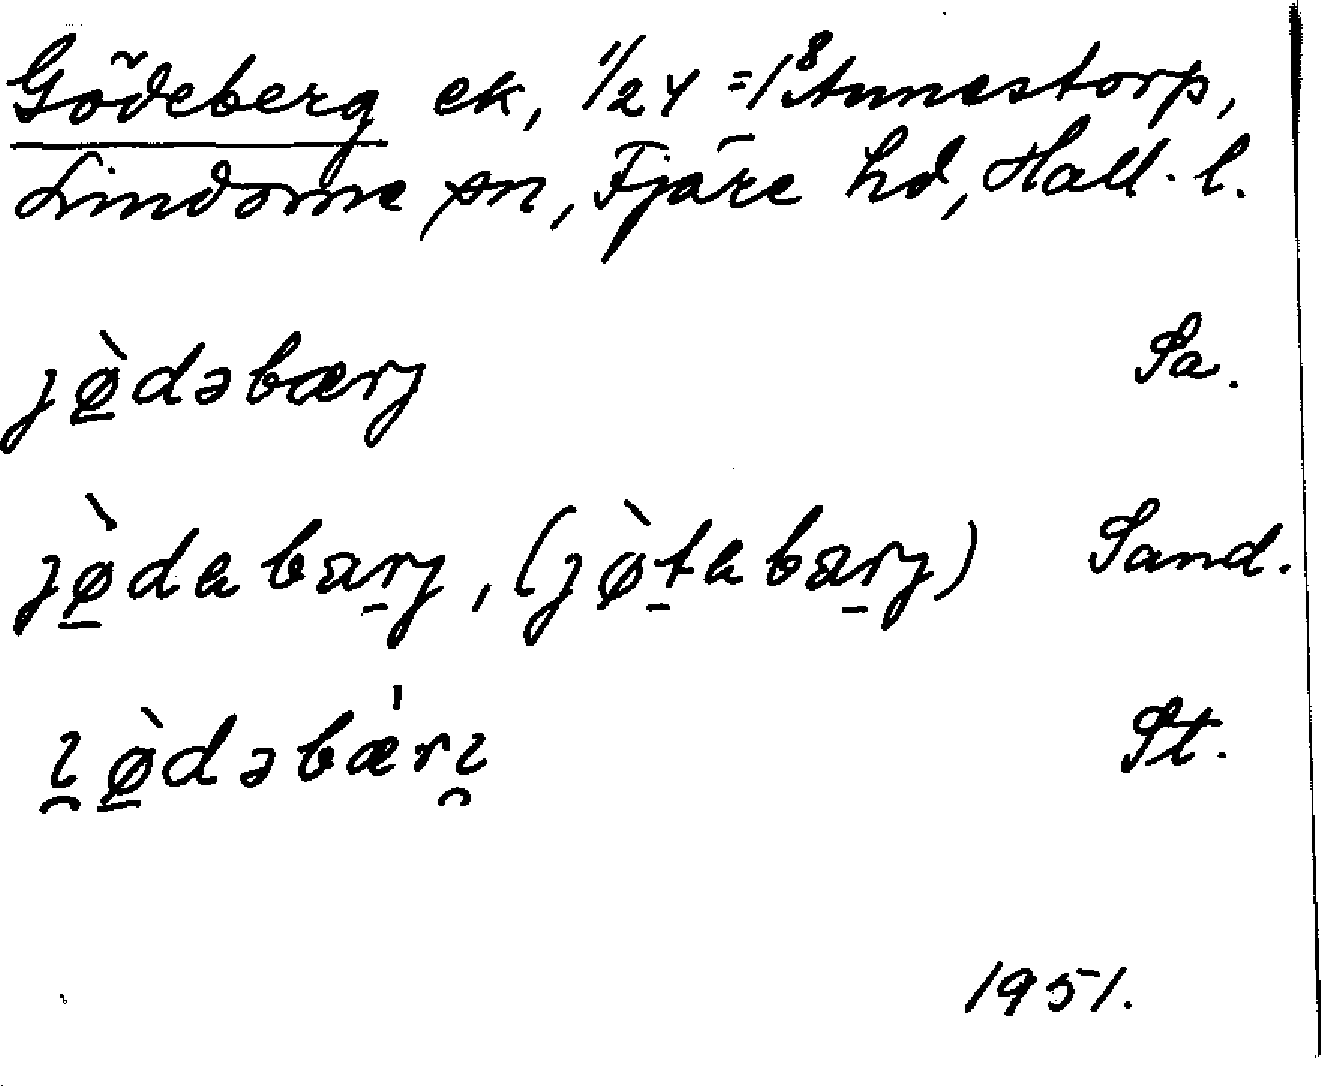 Gödeberg ek, 1/24 = 1⁸ Annestorp,
Lindome sn, Fjäre hd, Hall. l.
jø̲̀dəbærj Sa.
jø̲̀debar̲j, (jøt̲̀ebar̲j) Sand.
ı̯ø̲̀dəbæ̍rı̯ St.
1951.